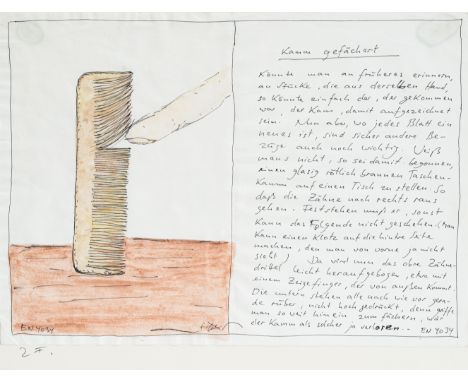 Kamm gefächert
Könnte man an früheres erinnern,
an Stücke, die aus derselben Hand,
so könnte einfach der, der gekommen
war, der Kamm, damit aufgezeichnet
sein. Nun aber, wo jedes Blatt ein
neues ist, sind sicher andere Be-
züge auch noch wichtig. Weiß
mans nicht, so sei damit begonnen,
einen glasig rötlich braunen Taschen-
Kamm auf einen Tisch zu stellen so
daß die Zähne nach rechts raus
gehen. Feststehen muß er, sonst
kann das Folgende nicht geschehen (man
kann einen Klotz auf die hintre Seite
machen, den man von vorne ja nicht
sieht). Da wird nun das obre Zähne-
drittel leicht heraufgebogen, etwa mit
einem Zeigefinger, der von außen kommt.
Die untern stehen alle noch wie vor gera-
de rüber, nicht hochgedrückt, denn griffe
man so weit hinein zum fächern, wär
der Kamm als solcher ja verloren. - EN 4034
EN 4034
2 F.